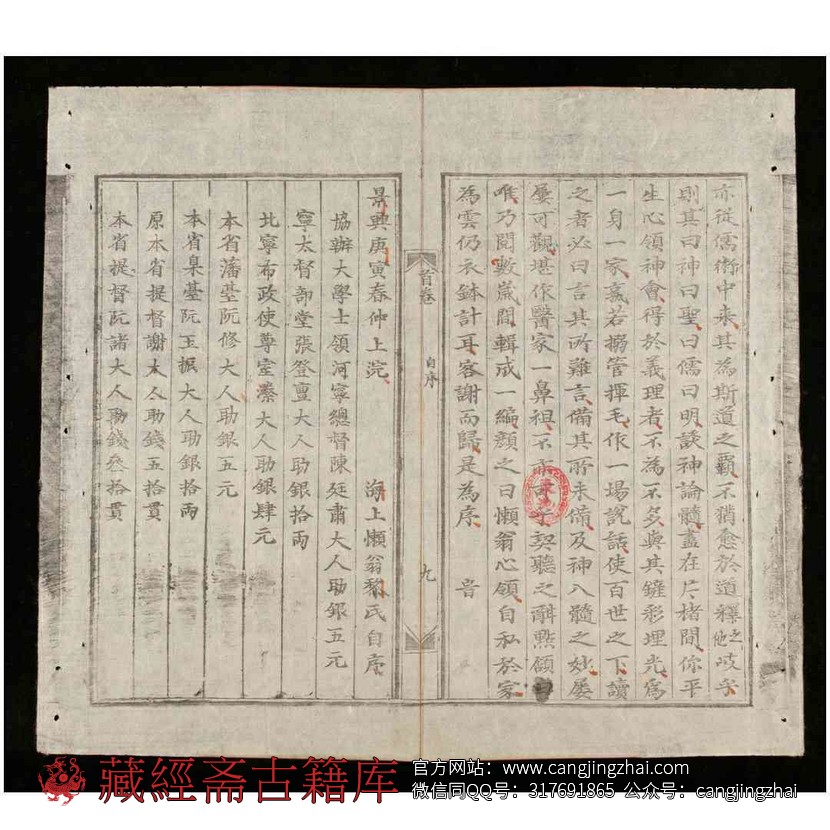 亦從儒術中来其為斯道之覇不猶愈於道釋之他岐乎
則其曰神曰聖曰儒曰明談神論髓盡在片楮間你平
生心領神會得於義理者不為不多與其鏟彩埋光爲
一身一家髙若搦管揮毛作一場説話使百世之下讀
之者必曰言其所難言備其所未備及神入髓之妙屡
屡可觀堪作醫家一鼻祖不亦 乎契聽之辭㸃頷
唯乃閱數歳間輯成一編顔之曰懒翁心領自私於家
為雲仍衣鉢計耳客謝而歸是為序 旹
首卷
自序
九
景興庚寅春仲上浣 海上懒翁黎氏自序
協辦大學士領河寧總督陳廷肅大人助銀五元
寧太督部堂張登亶大人助銀拾両
北寧布政使尊室 大人助銀肆元
本省藩䑓阮修大人助銀五元
本省臬䑓阮玉振大人助銀拾両
原本省提督謝大人助錢五拾貫
本省提督阮諸大人助錢叁拾貫
藏經斋古籍库
官方网站：www.cangjingzhai.com
微信同QQ号：317691865 公众号：cangjingzhai